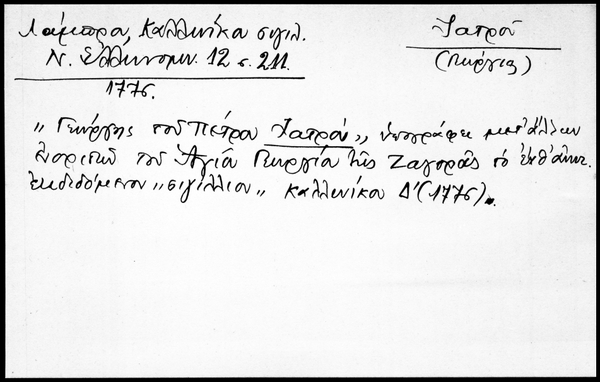 Λάμπρου, Καλλινίκου σιγιλ.
Ν. Ελληνομν. 12 σ. 211.
1776.
Ιατρού
(Γιώργης)
"Γεώργης του Πέτρου Ιατρού", υπογράφει μετ' άλλων
του Αγίου Γεωργίου της Ζαγοράς το
εκδιδόμενον "σιγίλλιον" Καλλινίκου Δ' (1776).